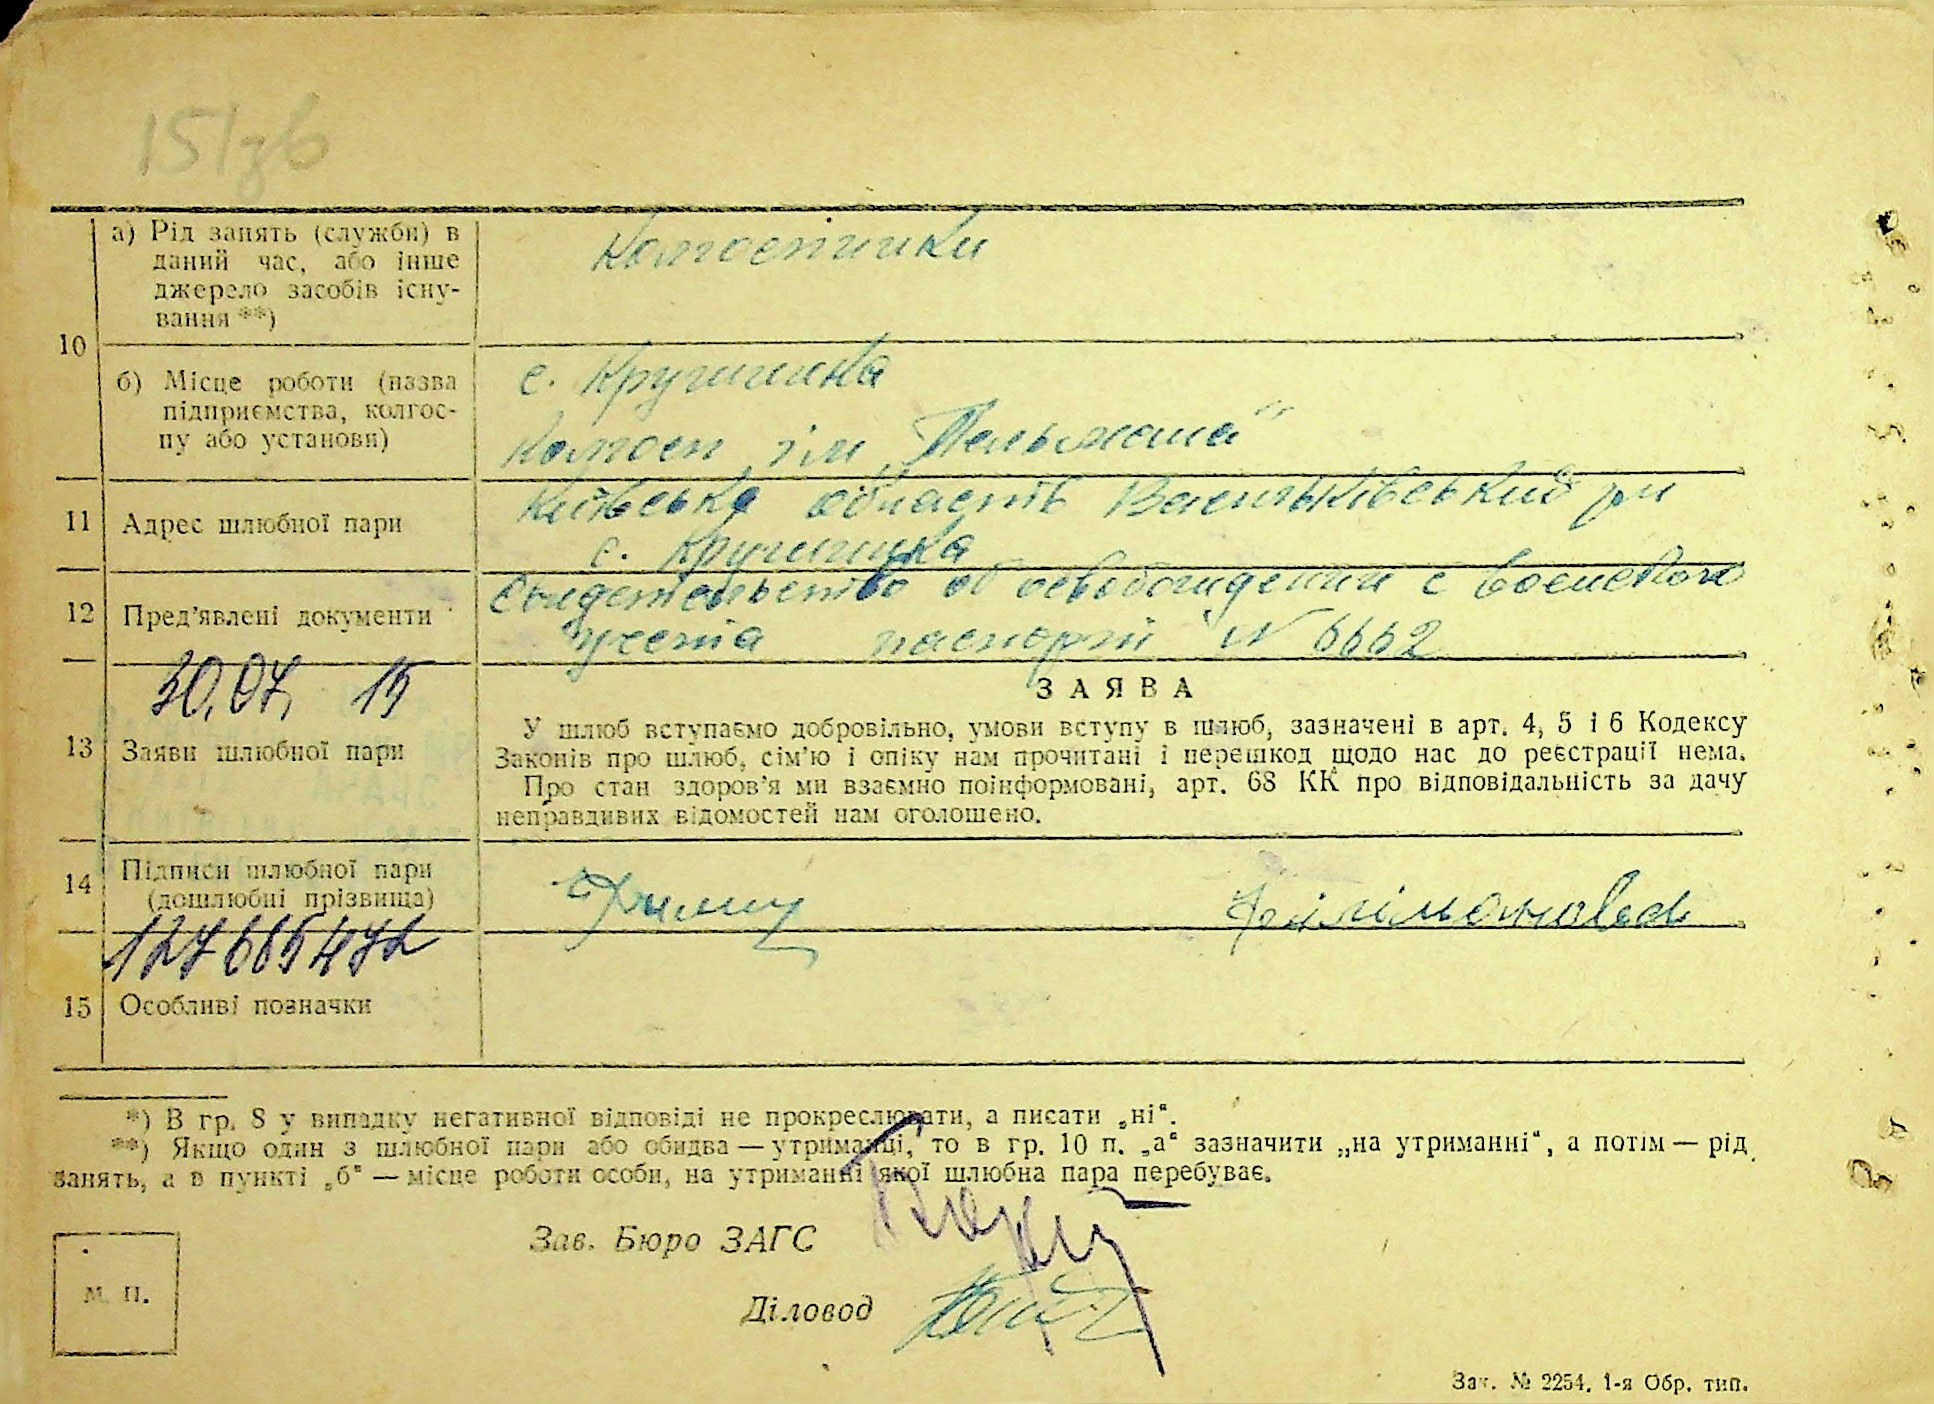 151зв
а) Рід занять (служби) в
даний час, або інше
джерело засобів існу-
вання **)
колгоспники
10
б) Місце роботи (назва
підприємства, колгос-
пу або установи)
с. Кручинка
колгосп ім „Тельмана"
11 Адрес шлюбної пари
Київська область Васильківський рн
с. Кручинка
12 Пред'явлені документи
Свидетельство об освобождении с воєнского
учета паспорт № 6662
30.07. 15
13 Заяви шлюбної пари
ЗАЯВА
У шлюб вступаємо добровільно, умови вступу в шлюб, зазначені в арт. 4, 5 і 6 Кодексу
Законів про шлюб, сім'ю і опіку нам прочитані і перешкод щодо нас до реєстрації нема.
Про стан здоров'я ми взаємно поінформовані, арт. 68 КК про відповідальність за дачу
неправдивих відомостей нам оголошено.
14 Підписи шлюбної пари
(дошлюбні прізвища)
127665472
15 Особливі позначки
*) В гр. 8 у випадку негативної відповіді не прокреслювати, а писати „ні".
**) Якщо один з шлюбної пари або обидва — утриманці, то в гр. 10 п. „а" зазначити „на утриманні", а потім — рід
занять, а в пункті „б" — місце роботи особи, на утриманні якої шлюбна пара перебуває.
Зав. Бюро ЗАГС
Діловод
М. П.
Зак. № 2254. 1-я Обр. тип.